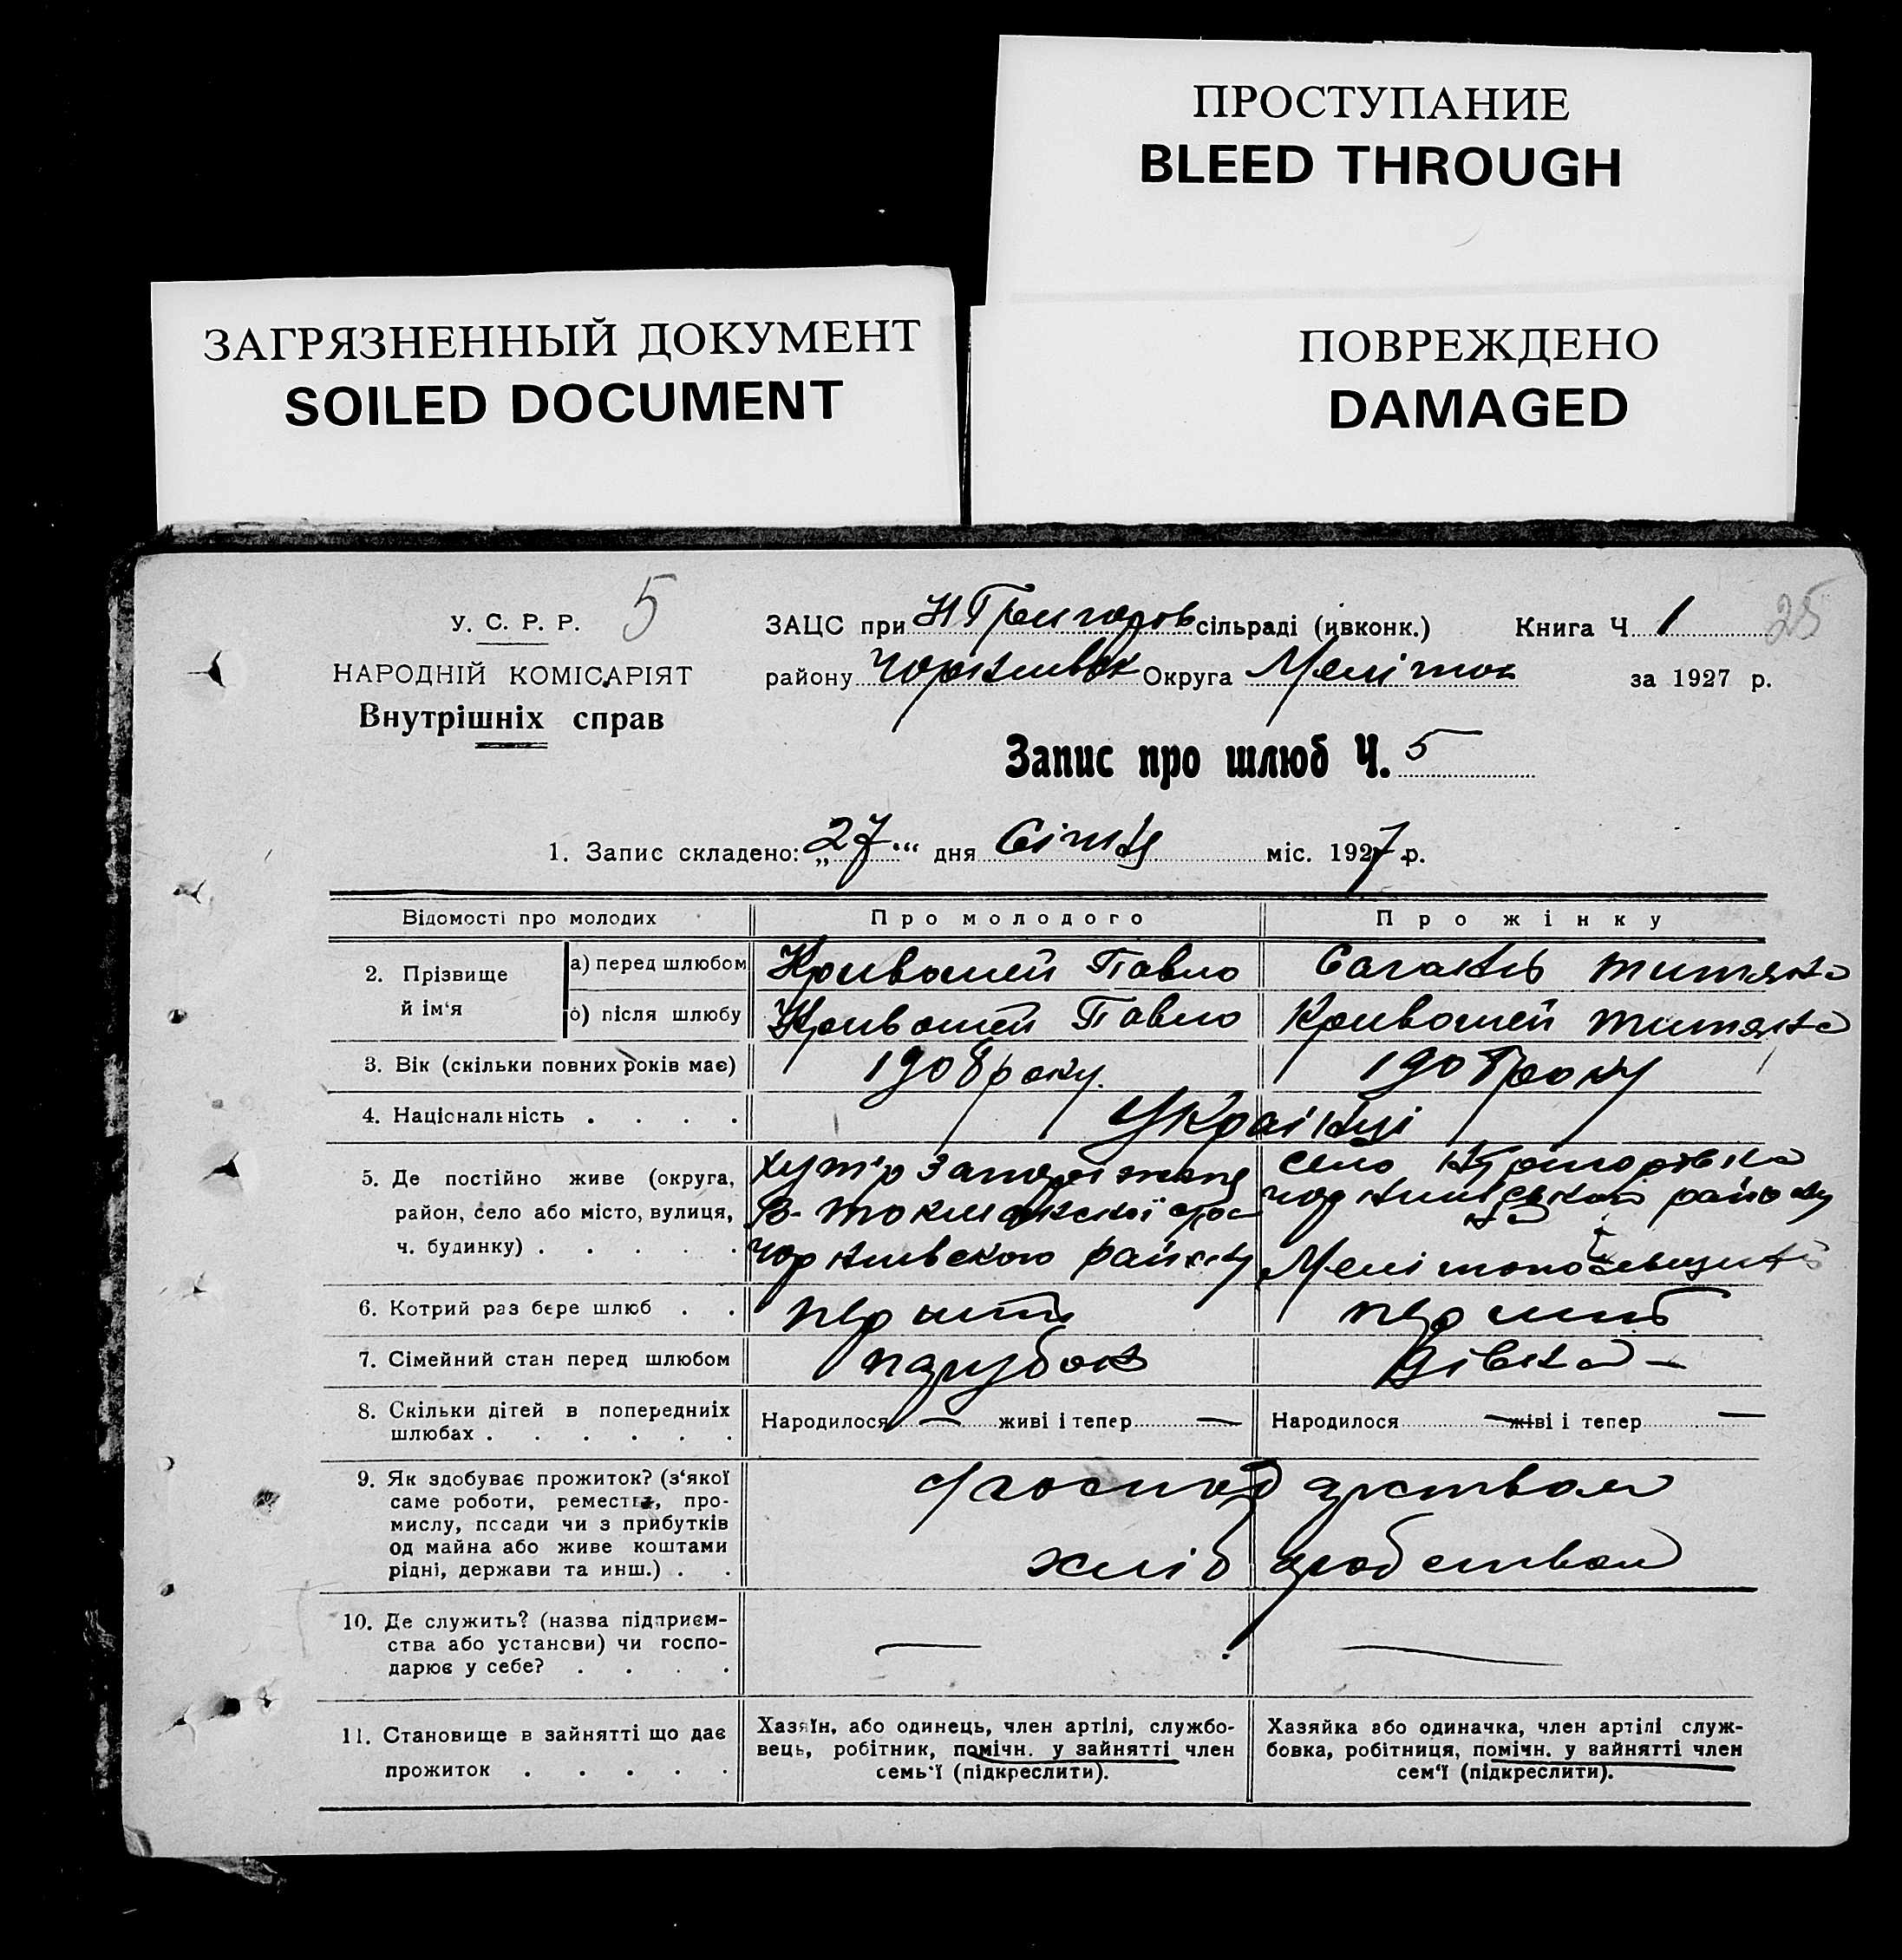 ПРОСТУПАНИЕ
BLEED THROUGH
ЗАГРЯЗНЕННЫЙ ДОКУМЕНТ
SOILED DOCUMENT
ПОВРЕЖДЕНО
DAMAGED
У. С. Р. Р. 5
НАРОДНІЙ КОМІСАРІЯТ
Внутрішніх справ
ЗАЦС при Н Григоров сільраді (ивконк.) Книга Ч. 1 25
району Чорнивск Округа Меліток за 1927 р.
Запис про шлюб Ч. 5
1. Запис складено: „27“ дня Січня міс. 1927 р.
Відомості про молодих Про молодого Про жінку
2. Прізвище й ім'я
а) перед шлюбом Кривошей Павло
б) після шлюбу Кривошей Павло Кривошей
3. Вік (скільки повних років має) 1908 року. 1908 року
4. Національність . . . . Українці
5. Де постійно живе (округа, район, село або місто, вулиця, ч. будинку) . . . . .
хутір
В-Токмакської
Чорнивского району
село Н Григорівка
району
Мелітопольвщини
6. Котрий раз бере шлюб . . перший перший
7. Сімейний стан перед шлюбом парубок дівка —
8. Скільки дітей в попередніх шлюбах . . . . . . Народилося — живі і тепер — Народилося — живі і тепер —
9. Як здобуває прожиток? (з'якої саме роботи, ремества, промислу, посади чи з прибутків од майна або живе коштами рідні, держави та инш.) . .
господарством
хліборобством
10. Де служить? (назва підприємства або установи) чи господарює у себе? . . . . — —
11. Становище в зайнятті що дає прожиток . . . . .
Хазяїн, або одинець, член артілі, службовець, робітник, помічн. у зайнятті член семь'ї (підкреслити).
Хазяйка або одиначка, член артілі службовка, робітниця, помічн. у зайнятті член сем'ї (підкреслити).